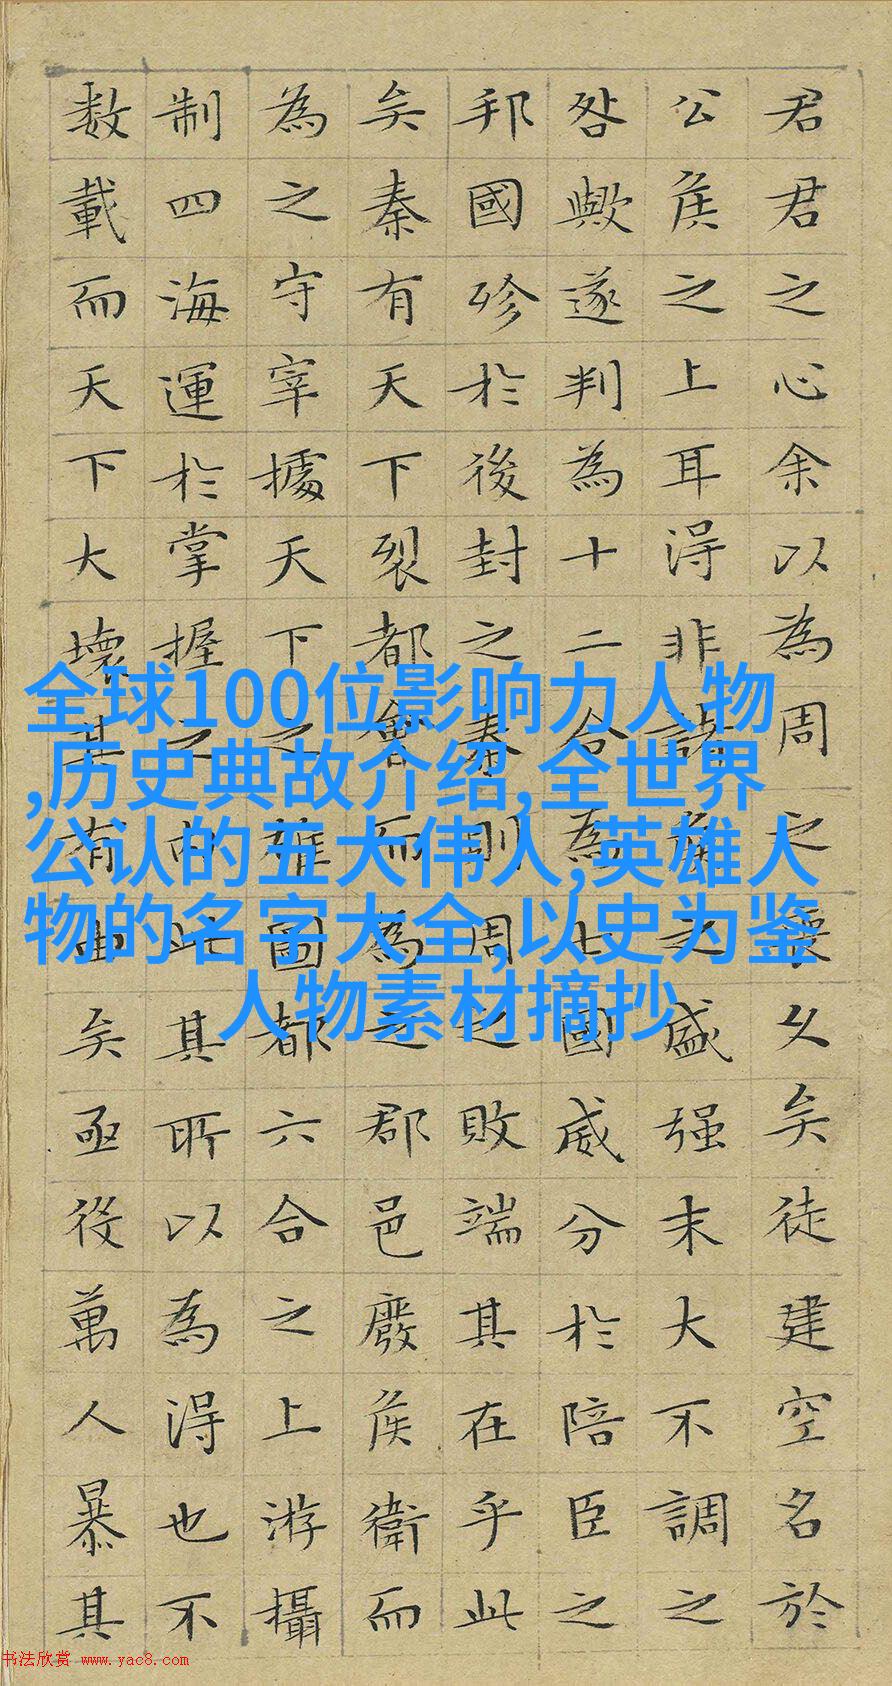 君君之心余以為周之喪久矣徒建空名於
公侯之上耳得非諸侯之盛强末大不調之
咎歟遂判為十二合為七國威分於陪臣之
邦國殄於後封之秦則周之敗端其在乎此
矣秦有天下裂都會而為之郡邑廢侯衛而
為之守宰據天下之雄圖都六合之上游攝
制四海運於掌握之內此其所以為得也不
数載而天下大壞其有由矣亟役萬人暴其
全球100位影响力人物
,历史典故介绍,全世界
公认的五大伟人,英雄人
物的名字大全,以史为鉴
人物素材摘抄
书法欣赏 www.yac8.com